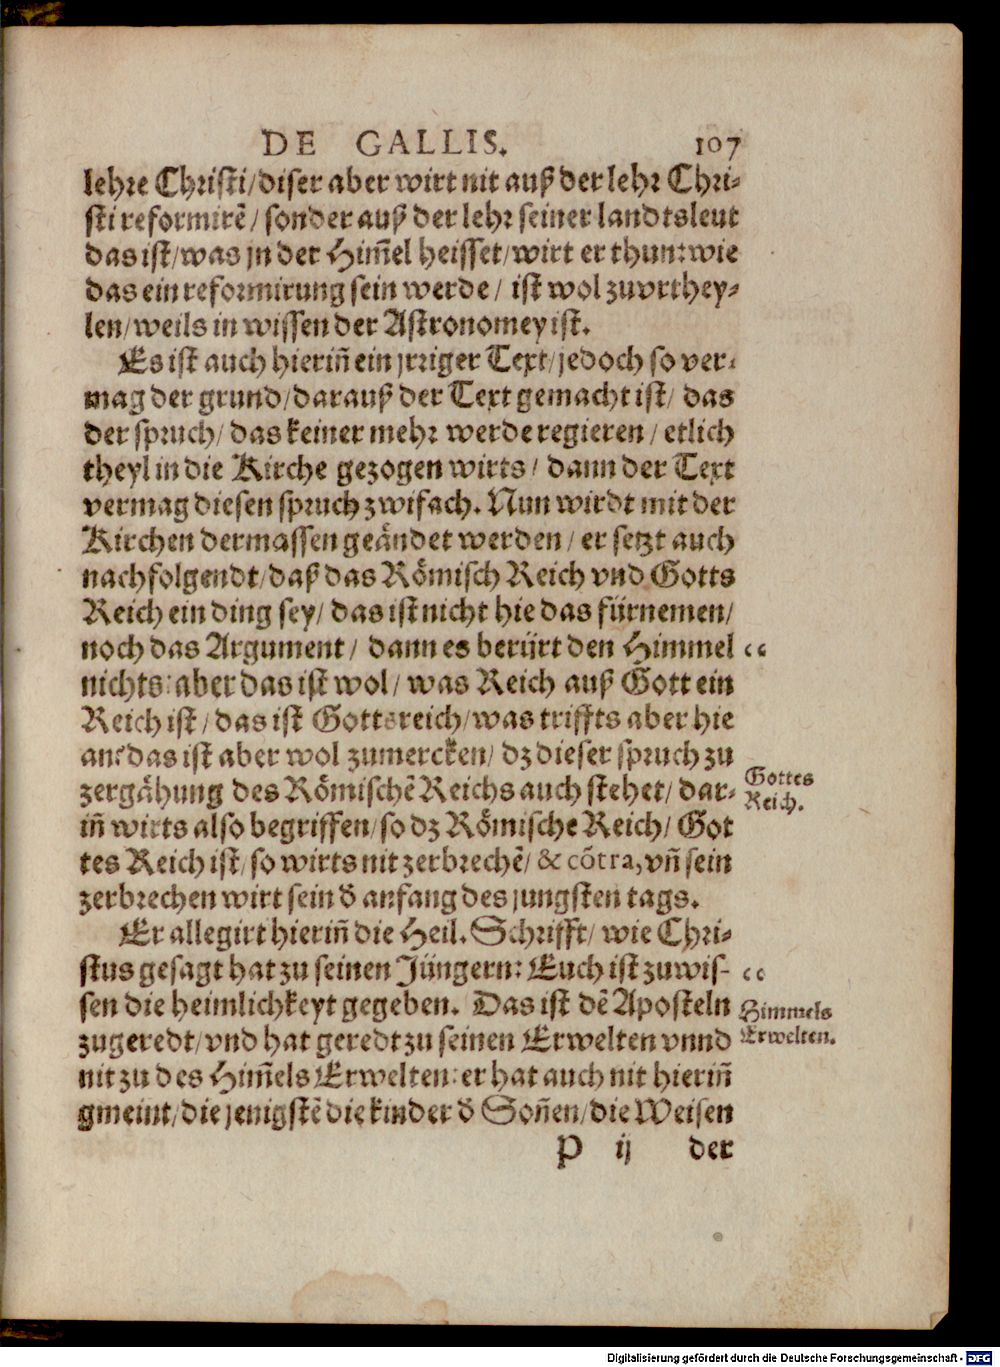 DE GALLIS. 107
lehre Christi/diser aber wirt nit auß der lehr Chri-
sti reformirē/sonder auß der lehr seiner landtsleut
das ist/was jn der Him̄el heisset/wirt er thun: wie
das ein reformirung sein werde/ ist wol zuvrthey-
len/weils in wissen der Astronomey ist.
Es ist auch hierin̄ ein jrriger Text/jedoch so ver-
mag der grund/darauß der Text gemacht ist/ das
der spruch/das keiner mehr werde regieren/etlich
theyl in die Kirche gezogen wirts/ dann der Text
vermag diesen spruch zwifach. Nun wirdt mit der
Kirchen dermassen geändet werden/er setzt auch
nachfolgendt/daß das Römisch Reich vnd Gotts
Reich ein ding sey/das ist nicht hie das fürnemen/
noch das Argument/ dann es berürt den Himmel “
nichts: aber das ist wol/was Reich auß Gott ein
Reich ist/das ist Gottsreich/was triffts aber hie
an? das ist aber wol zumercken/ dz dieser spruch zu
zergähung des Römischē Reichs auch stehet/dar-
Gottes
Reich.
in̄ wirts also begriffen/so dz Römische Reich/ Got
tes Reich ist/so wirts nit zerbrechē/ & cōtra, vn̄ sein
zerbrechen wirt sein d̄ anfang des jungsten tags.
Er allegirt hierin̄ die Heil. Schrifft/wie Chri-
stus gesagt hat zu seinen Jüngern: Euch ist zuwis- “
sen die heimlichkeyt gegeben. Das ist dē Aposteln
Himmels
Erwelten.
zugeredt/vnd hat geredt zu seinen Erwelten vnnd
nit zu des Him̄els Erwelten: er hat auch nit hierin̄
gmeint/die jenigstē die kinder d̄ Son̄en/die Weisen
P ij der
Digitalisierung gefördert durch die Deutsche Forschungsgemeinschaft - DFG